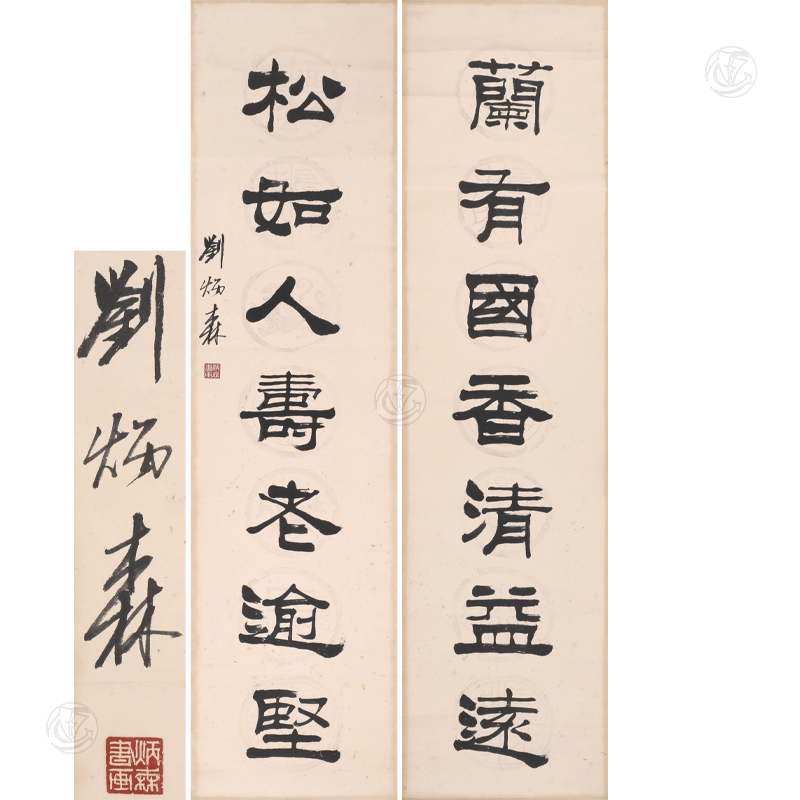 蘭有國香清益遠
松如人壽老逾堅
劉炳森
炳森書画
劉炳森
炳森書画